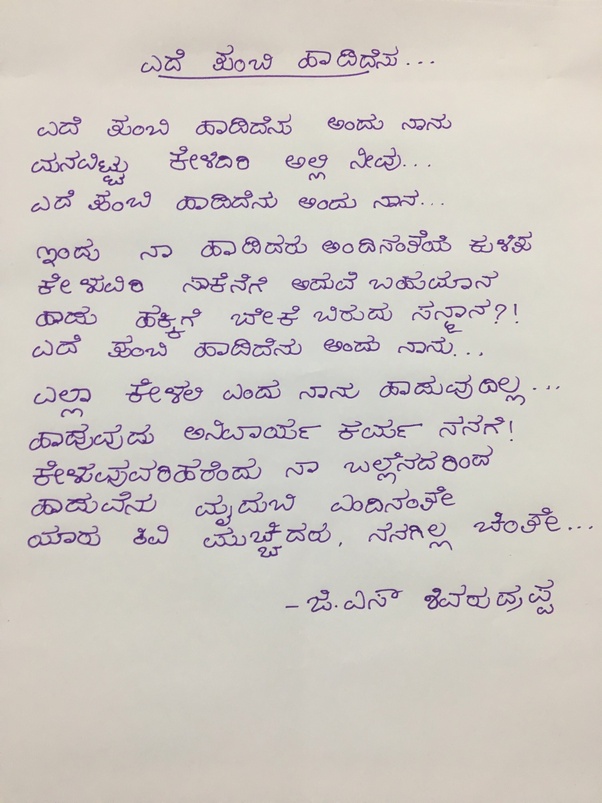 ಎದೆ ತುಂಬಿ ಹಾಡಿದೆನು...
ಎದೆ ತುಂಬಿ ಹಾಡಿದೆನು ಅಂದು ನಾನು
ಮನವಿಟ್ಟು ಕೇಳಿದಿರಿ ಅಲ್ಲಿ ನೀವು...
ಎದೆ ತುಂಬಿ ಹಾಡಿದೆನು ಅಂದು ನಾನ...
ಇಂದು ನಾ ಹಾಡಿದರು ಅಂದಿನಂತೆಯೆ ಕುಳಿತು
ಕೇಳುವಿರಿ ಸಾಕೆನಗೆ ಅದುವೆ ಬಹುಮಾನ
ಹಾಡು ಹಕ್ಕಿಗೆ ಬೇಕೆ ಬಿರುದು ಸನ್ಮಾನ?!
ಎದೆ ತುಂಬಿ ಹಾಡಿದೆನು ಅಂದು ನಾನು...
ಎಲ್ಲಾ ಕೇಳಲಿ ಎಂದು ನಾನು ಹಾಡುವುದಿಲ್ಲ...
ಹಾಡುವುದು ಅನಿವಾರ್ಯ ಕರ್ಮ ನನಗೆ!
ಕೇಳುವವರಿಹರೆಂದು ನಾ ಬಲ್ಲೆನದರಿಂದ
ಹಾಡುವೆನು ಮೃದುಬಿ ಎಂದಿನಂತೇ
ಯಾರು ಕಿವಿ ಮುಚ್ಚಿದರು, ನನಗಿಲ್ಲ ಚಿಂತೇ...
- ಜಿ.ಎಸ್ ಶಿವರುದ್ರಪ್ಪ